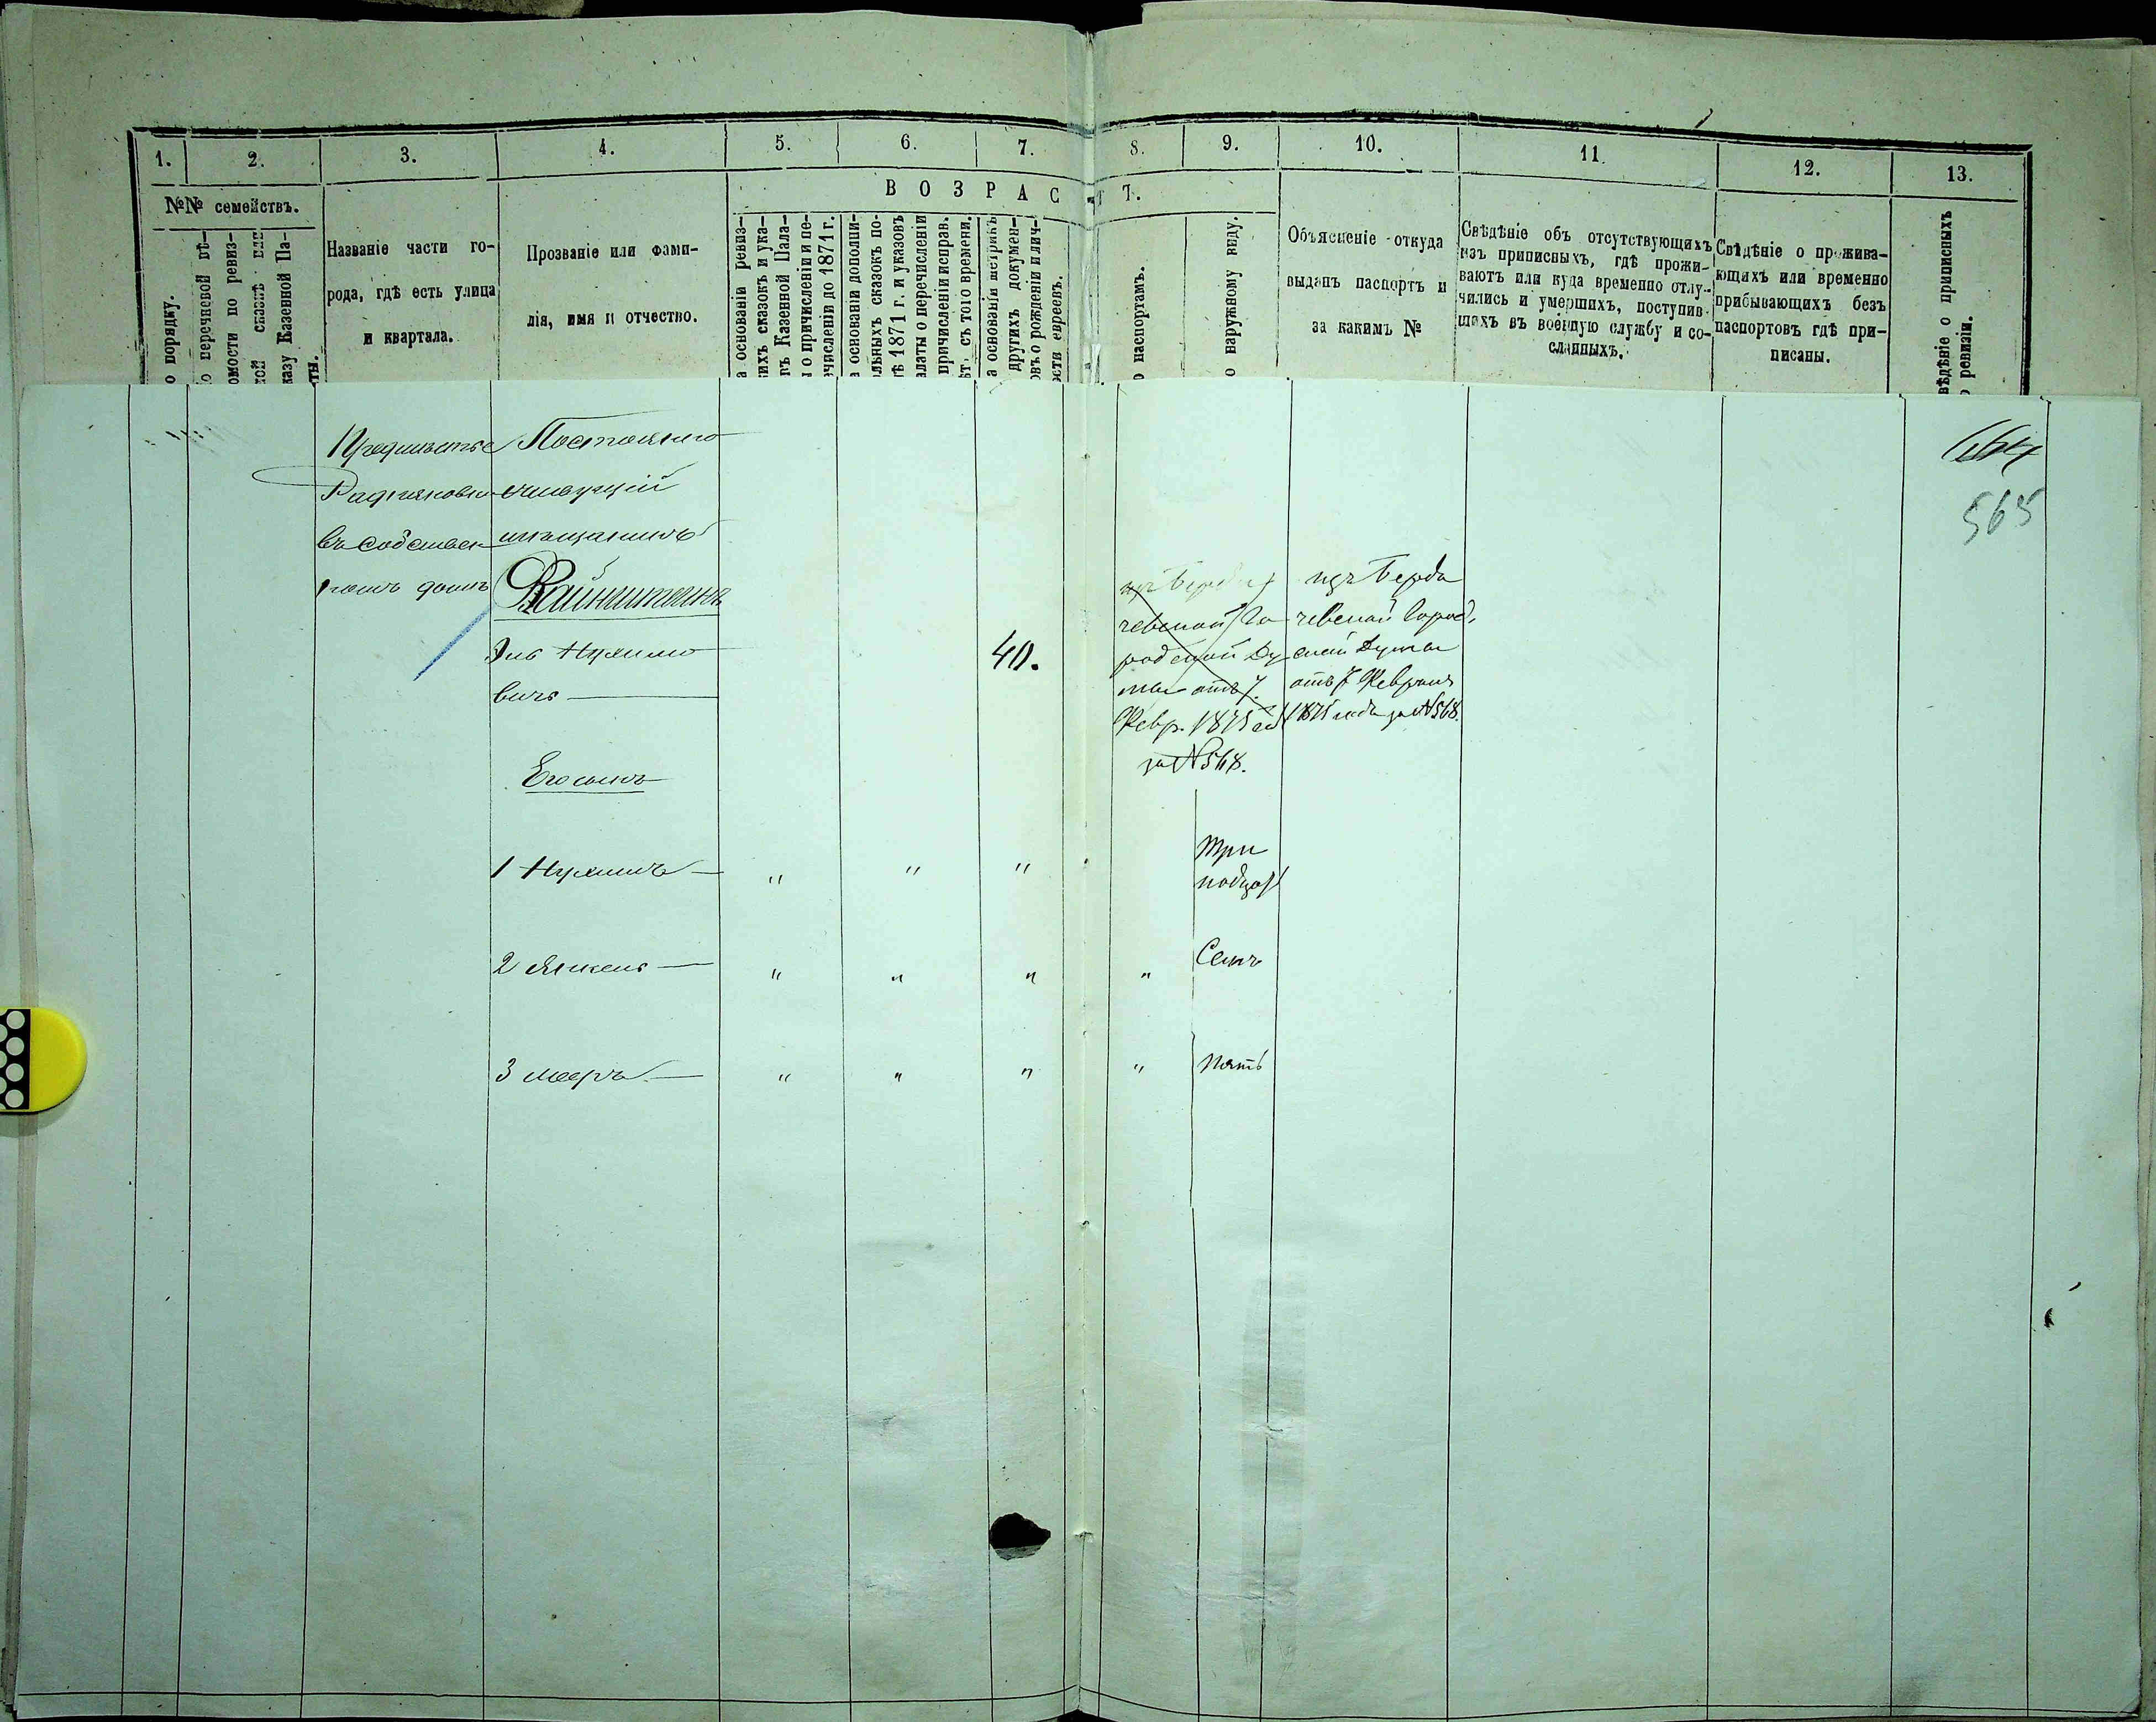 1.
2.
3.
4.
5.
6.
7.
8.
9.
10.
11.
12.
13.
ВОЗРАСТ
Т.
№№ семействъ.
о порядку.
о перечневой вѣ-
омости по ревиз-
кой сказкѣ или
казу Казенной Па-
ты.
Названіе части го-
рода, гдѣ есть улица
и квартала.
Прозваніе или фами-
лія, имя и отчество.
а основаніи ревиз-
кихъ сказокъ и ука-
въ Казенной Пала-
ы о причисленіи и пе-
ечисленіи до 1871 г.
а основаніи дополни-
льныхъ сказокъ по-
лѣ 1871 г. и указовъ
алаты о перечисленіи
причисленіи исправ.
ѣт. съ того времени.
а основаніи метрикъ
другихъ докумен-
овъ о рожденіи и лич-
ости евреевъ.
о паспортамъ.
о наружному виду.
Объясненіе откуда
выданъ паспортъ и
за какимъ №
Свѣдѣніе объ отсутствующихъ
изъ приписныхъ, гдѣ прожи-
ваютъ или куда временно отлу-
чились и умершихъ, поступив-
шихъ въ военную службу и со-
сланныхъ.
Свѣдѣніе о прожива-
ющихъ или временно
прибывающихъ безъ
паспортовъ гдѣ при-
писаны.
вѣдѣніе о приписныхъ
о ревизіи.
Предмѣстье
въ собствен
номъ домѣ
Постоянно
живущій
мѣщанинъ
Вайнштейнъ
Нухимо
вичъ
40.
изъ Берди
чевской Го
родской Ду
мы отъ 7
Февр. 1875 го
за № 568.
изъ Берди
чевской Город
ской Думы
отъ 7 Февраля
1875 года за № 568.
Его сынъ
1 Нухимъ — " " "
Три
2 Янкель — " " " "
Семь
3 Мееръ — " " " "
Пять
565